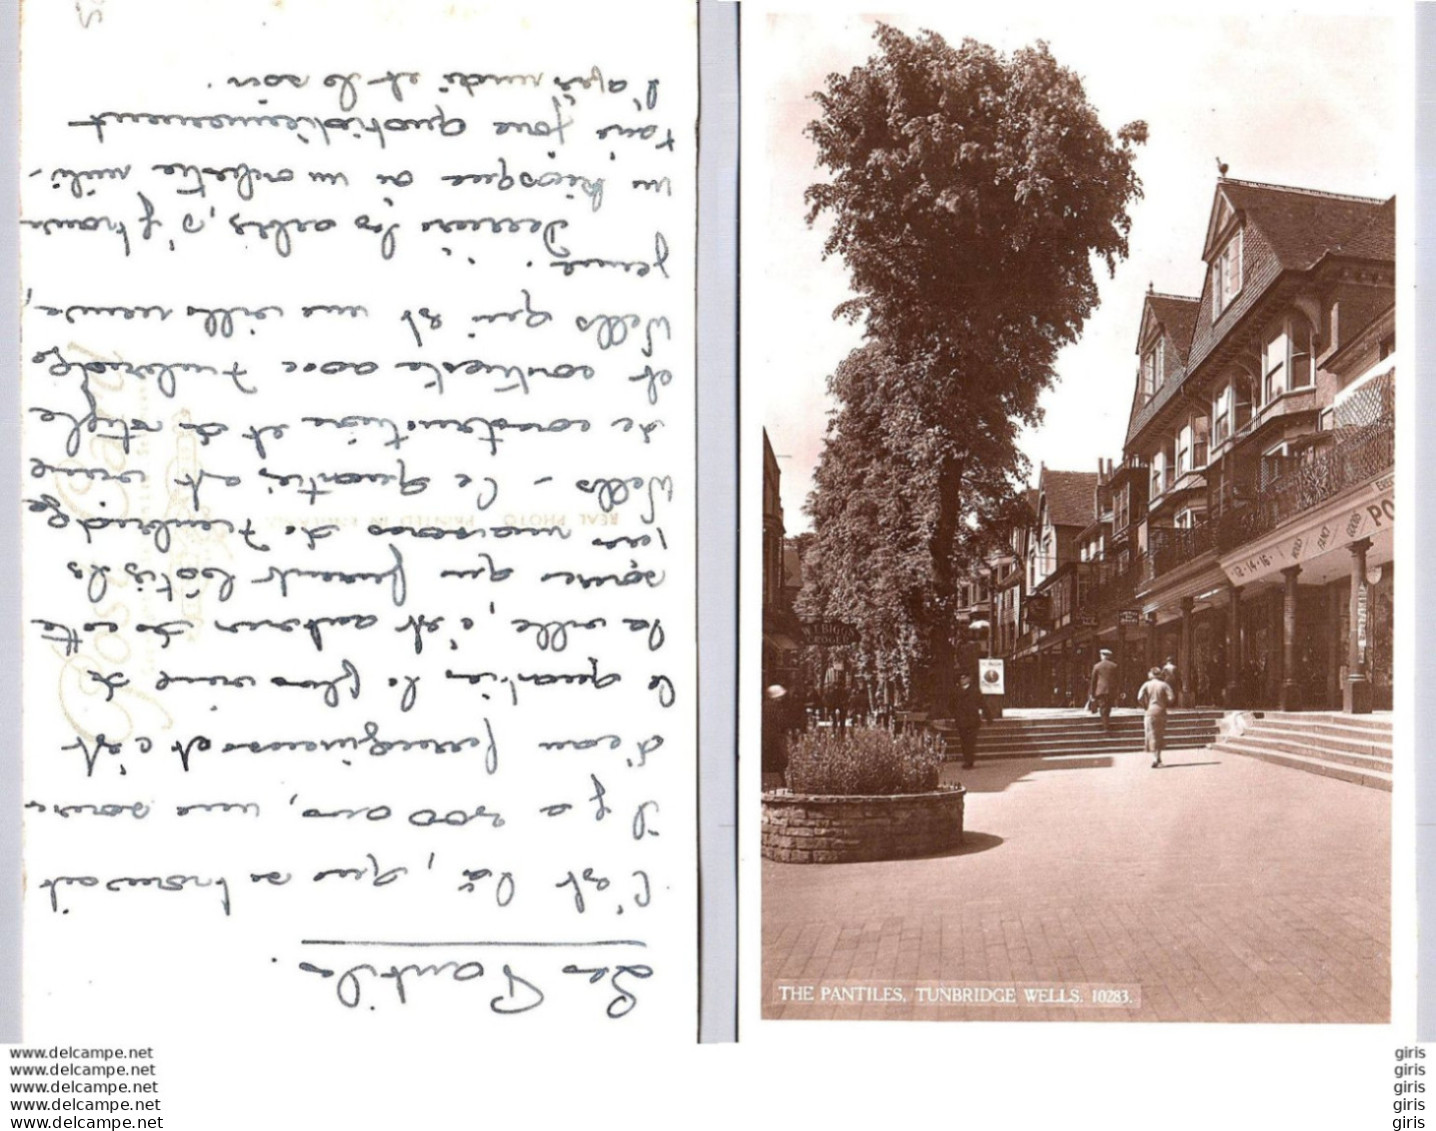 Les Pantiles.
C'est là, que se trouvait
il y a 300 ans, une source
d'eau ferrugineuse et c'est
le quartier le plus vieux de
la ville, c'est autour de cette
source que furent bâties les
maisons de Tunbridge
Wells - Ce quartier est vieux
de construction et de style
et contraste avec Tunbridge
Wells qui est une ville neuve,
jeune.
Derrière les arbres, s'y trouve
un kiosque où un orchestre mili-
taire joue quotidiennement
l'après midi et le soir.
Post Card
REAL PHOTO PRINTED IN ENGLAND
12-14-16
FANCY GOODS
PO
THE PANTILES, TUNBRIDGE WELLS. 10283.
www.delcampe.net
www.delcampe.net
www.delcampe.net
www.delcampe.net
www.delcampe.net
giris
giris
giris
giris
giris